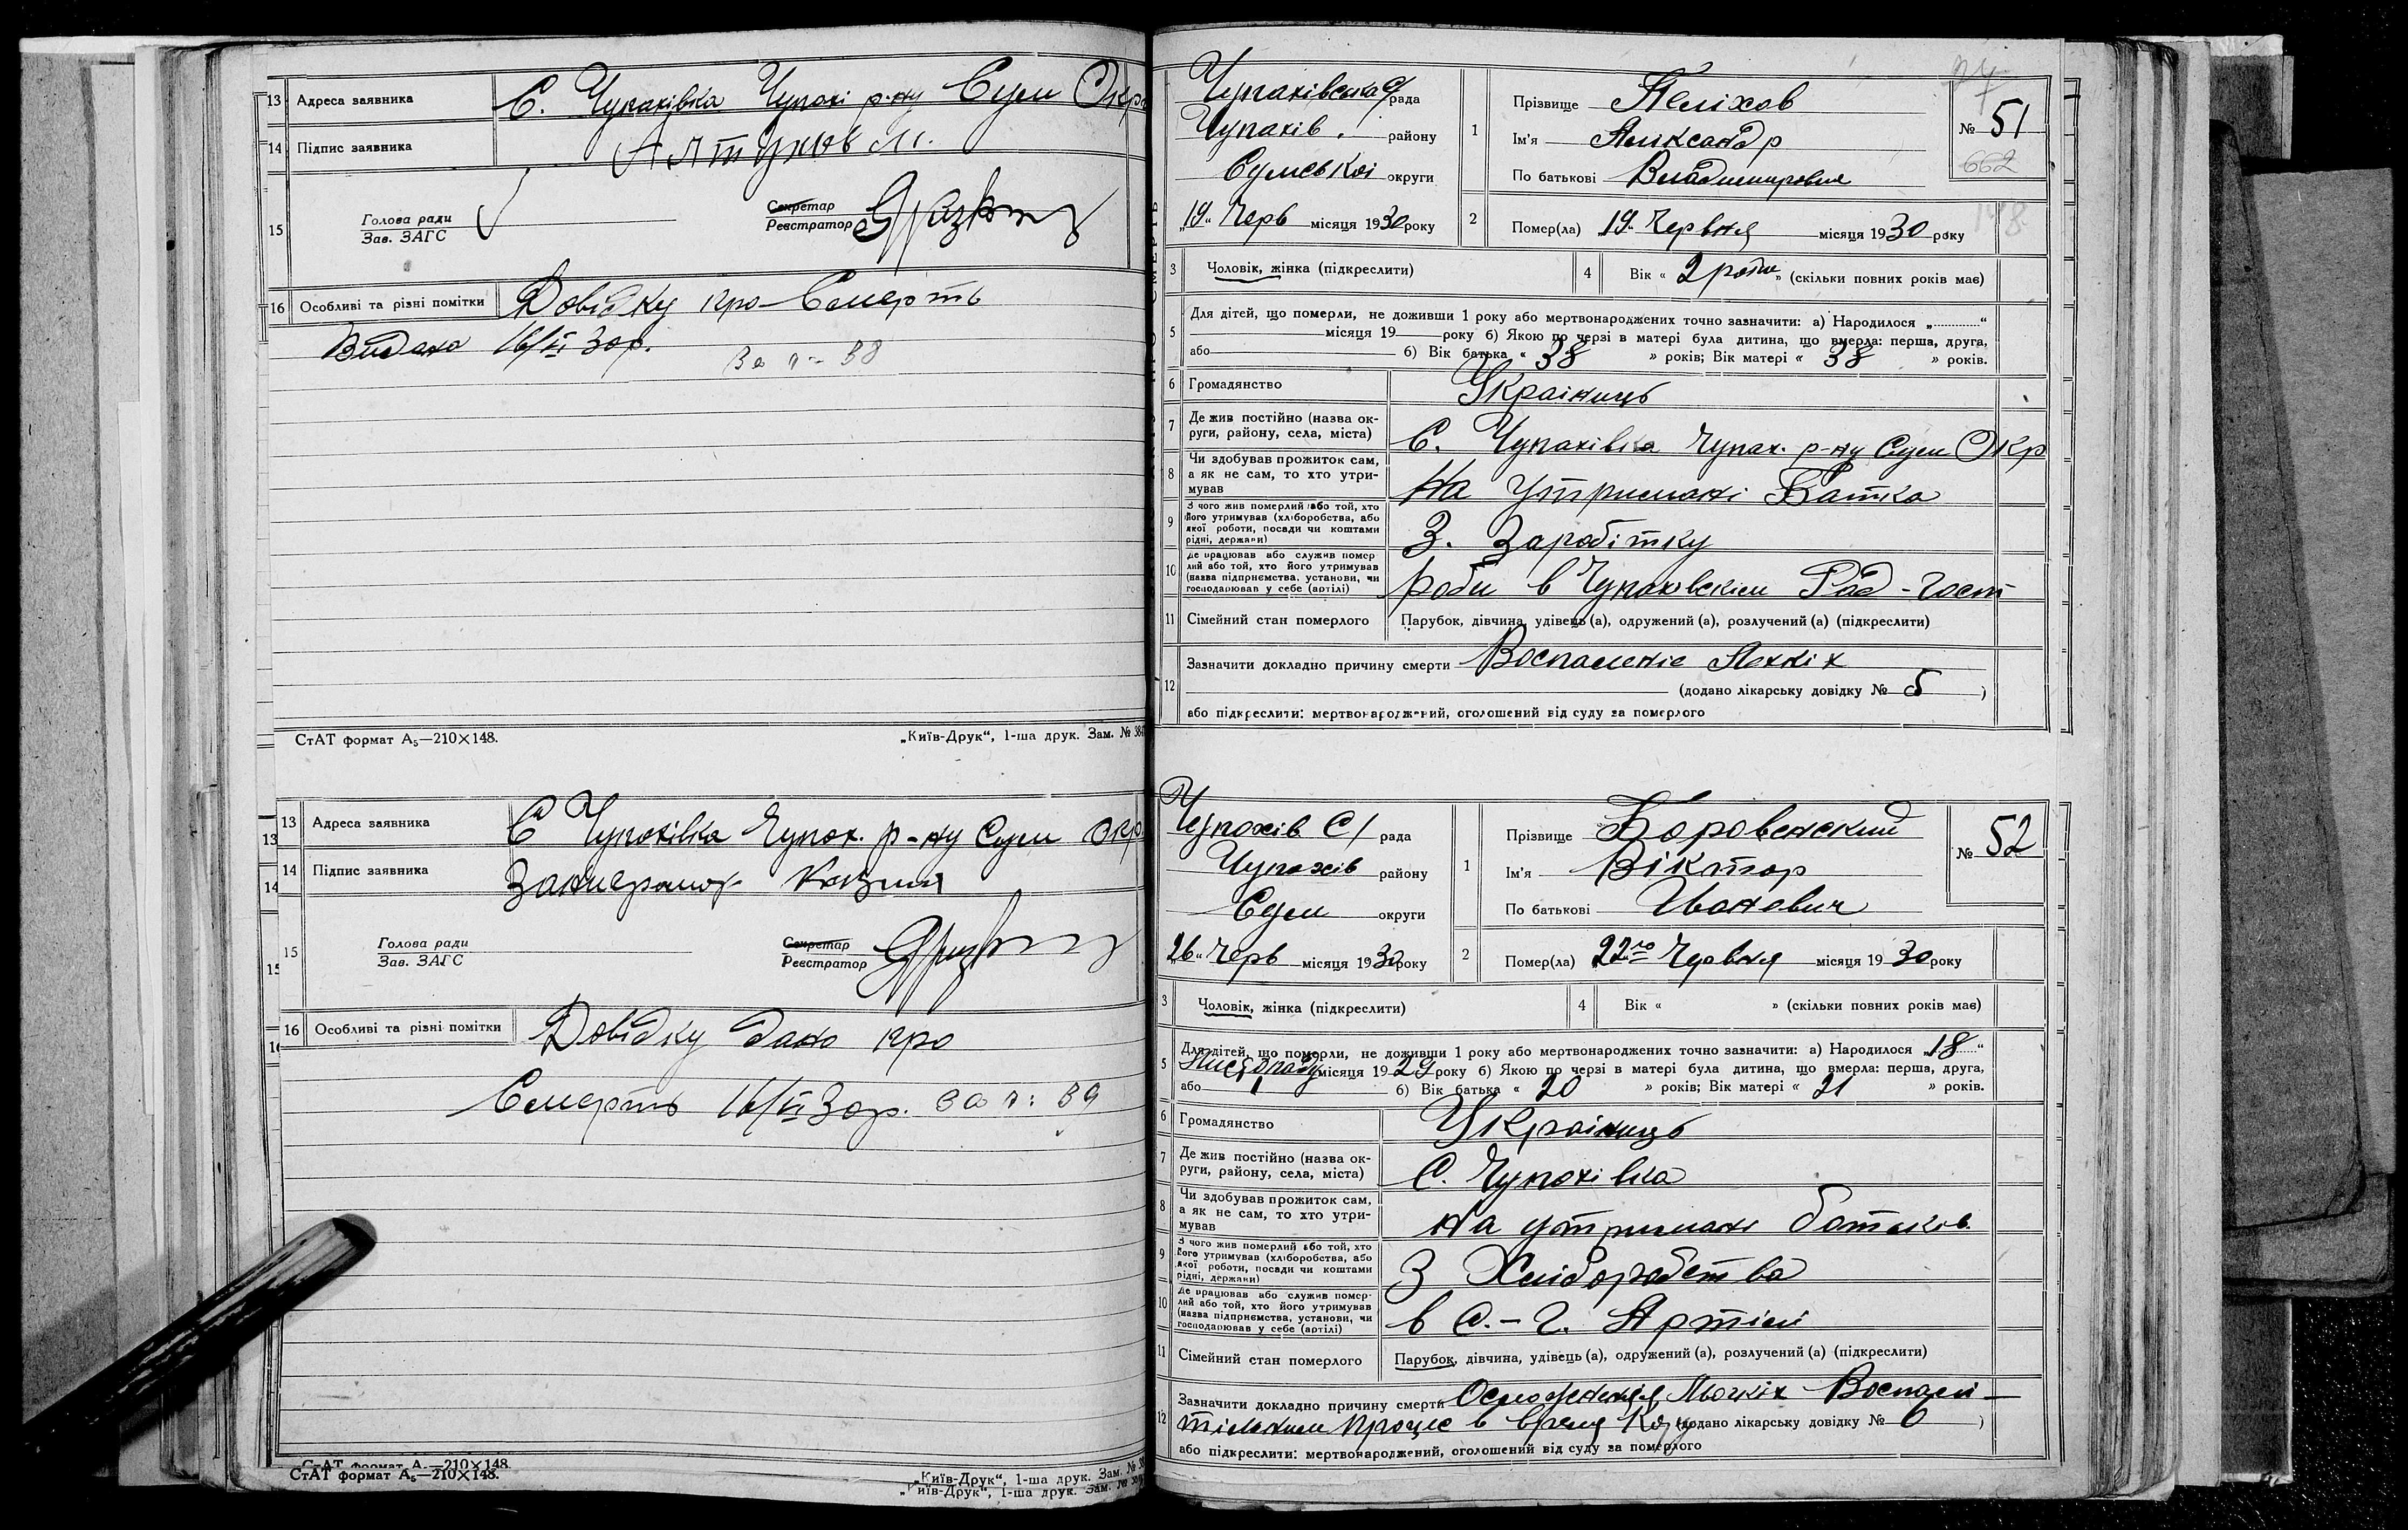 13 Адреса заявника С. Чупахівка Чупахі р-ну Сум Окр
14 Підпис заявника
15 Голова ради
Зав. ЗАГС
Секретар
Реєстратор
16 Особливі та різні помітки Довідку про Смерть
Видано 16/VI 30р. За № 38
СтАТ формат А₅—210×148. „Київ-Друк“, 1-ша друк. Зам. №
13 Адреса заявника С Чупахівка Чупах. р-ну Сум Окр.
14 Підпис заявника
15 Голова ради
Зав. ЗАГС
Секретар
Реєстратор
16 Особливі та різні помітки Довідку дано про
Смерть 16/VI 30р. за №: 39
СтАТ формат А₅—210×148. „Київ-Друк“, 1-ша друк. Зам. №
Чупахівська рада
Чупахів. району
Сумської округи
„19“ Черв місяця 1930 року
1 Прізвище
Ім'я Александр
По батькові Владимирович
№ 51
662
2 Помер(ла) 19 Червня місяця 1930 року
3 Чоловік, жінка (підкреслити)
4 Вік « 2 роки » (скільки повних років має)
5 Для дітей, що померли, не доживши 1 року або мертвонароджених точно зазначити: а) Народилося „ “
місяця 19 року б) Якою по черзі в матері була дитина, що вмерла: перша, друга,
або б) Вік батька « 38 » років; Вік матері « 38 » років.
6 Громадянство Українець
7 Де жив постійно (назва округи, району, села, міста) С. Чупахівка Чупах. р-ну Сум Окр
8 Чи здобував прожиток сам, а як не сам, то хто утримував На утримані Батка
9 З чого жив померлий або той, хто його утримував (хліборобства, або якої роботи, посади чи коштами рідні, держави) З. Заробітку
10 Де працював або служив померлий або той, хто його утримував (назва підприємства, установи, чи господарював у себе (артілі) роби в Чупаховским Рад-госп
11 Сімейний стан померлого Парубок, дівчина, удівець (а), одружений (а), розлучений (а) (підкреслити)
12 Зазначити докладно причину смерти Воспаленіе Легкіх
(додано лікарську довідку № 5 )
або підкреслити: мертвонароджений, оголошений від суду за померлого
Чупахів С/ рада
Чупахів району
Сум округи
„26“ Черв місяця 1930 року
1 Прізвище Боровенский
Ім'я Віктор
По батькові Іванович
№ 52
2 Помер(ла) 22го Червня місяця 1930 року
3 Чоловік, жінка (підкреслити)
4 Вік « » (скільки повних років має)
5 Для дітей, що померли, не доживши 1 року або мертвонароджених точно зазначити: а) Народилося „18“
Листопаду місяця 1929 року б) Якою по черзі в матері була дитина, що вмерла: перша, друга,
або 1 б) Вік батька « 20 » років; Вік матері « 21 » років.
6 Громадянство Українець
7 Де жив постійно (назва округи, району, села, міста) С. Чупахівка
8 Чи здобував прожиток сам, а як не сам, то хто утримував на утримані батьків
9 З чого жив померлий або той, хто його утримував (хліборобства, або якої роботи, посади чи коштами рідні, держави) З Хліборобства
10 Де працював або служив померлий або той, хто його утримував (назва підприємства, установи, чи господарював у себе (артілі) в С.-Г. Артілі
11 Сімейний стан померлого Парубок, дівчина, удівець (а), одружений (а), розлучений (а) (підкреслити)
12 Зазначити докладно причину смерти Воспалі-
тільним процес в время (додано лікарську довідку № 6 )
або підкреслити: мертвонароджений, оголошений від суду за померлого